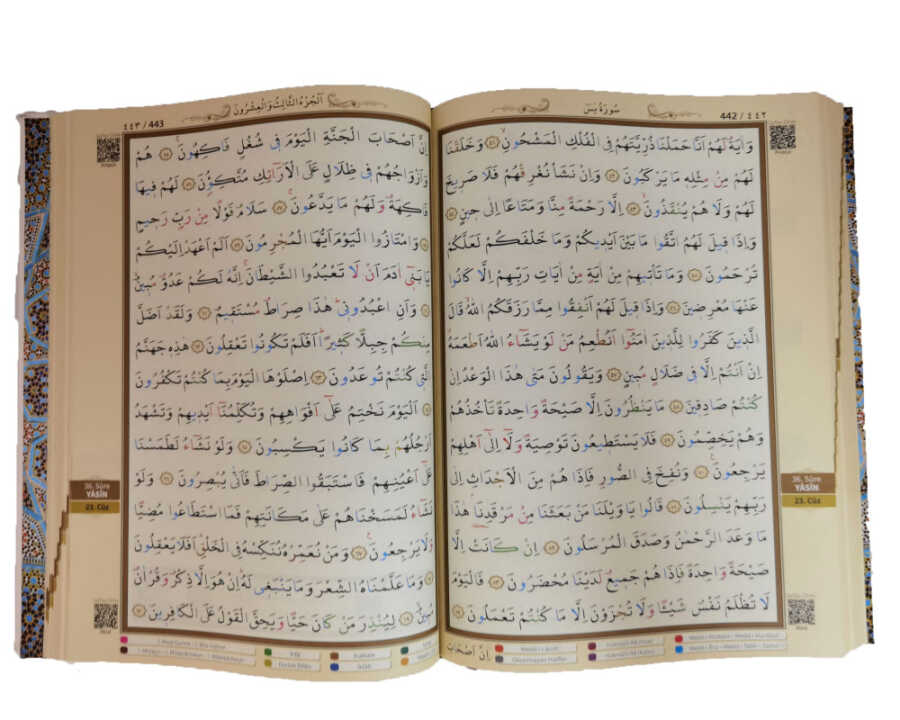 سُورَةُ يٰسٓ
442 / ٤٤٢
وَاٰيَةٌ لَهُمْ اَنَّا حَمَلْنَا ذُرِّيَّتَهُمْ فِي الْفُلْكِ الْمَشْحُونِۙ وَخَلَقْنَا
لَهُمْ مِنْ مِثْلِه۪ مَا يَرْكَبُونَ وَاِنْ نَشَأْ نُغْرِقْهُمْ فَلَا صَر۪يخَ
لَهُمْ وَلَا هُمْ يُنْقَذُونَۙ اِلَّا رَحْمَةً مِنَّا وَمَتَاعًا اِلٰى ح۪ينٍ
وَاِذَا ق۪يلَ لَهُمُ اتَّقُوا مَا بَيْنَ اَيْد۪يكُمْ وَمَا خَلْفَكُمْ لَعَلَّكُمْ
تُرْحَمُونَ وَمَا تَأْت۪يهِمْ مِنْ اٰيَةٍ مِنْ اٰيَاتِ رَبِّهِمْ اِلَّا كَانُوا
عَنْهَا مُعْرِض۪ينَ وَاِذَا ق۪يلَ لَهُمْ اَنْفِقُوا مِمَّا رَزَقَكُمُ اللّٰهُۙ قَالَ
الَّذ۪ينَ كَفَرُوا لِلَّذ۪ينَ اٰمَنُٓوا اَنُطْعِمُ مَنْ لَوْ يَشَٓاءُ اللّٰهُ اَطْعَمَهُۗ
اِنْ اَنْتُمْ اِلَّا ف۪ي ضَلَالٍ مُب۪ينٍ وَيَقُولُونَ مَتٰى هٰذَا الْوَعْدُ اِنْ
كُنْتُمْ صَادِق۪ينَ مَا يَنْظُرُونَ اِلَّا صَيْحَةً وَاحِدَةً تَأْخُذُهُمْ
وَهُمْ يَخِصِّمُونَ فَلَا يَسْتَط۪يعُونَ تَوْصِيَةً وَلَٓا اِلٰٓى اَهْلِهِمْ
يَرْجِعُونَ۟ وَنُفِخَ فِي الصُّورِ فَاِذَا هُمْ مِنَ الْاَجْدَاثِ اِلٰى
رَبِّهِمْ يَنْسِلُونَ قَالُوا يَا وَيْلَنَا مَنْ بَعَثَنَا مِنْ مَرْقَدِنَاۢ هٰذَا
مَا وَعَدَ الرَّحْمٰنُ وَصَدَقَ الْمُرْسَلُونَ اِنْ كَانَتْ اِلَّا
صَيْحَةً وَاحِدَةً فَاِذَا هُمْ جَم۪يعٌ لَدَيْنَا مُحْضَرُونَ فَالْيَوْمَ
لَا تُظْلَمُ نَفْسٌ شَيْـًٔا وَلَا تُجْزَوْنَ اِلَّا مَا كُنْتُمْ تَعْمَلُونَ
اِنَّ اَصْحَابَ
36. Sûre
YÂSÎN
23. Cüz
اَلْجُزْءُ الثَّالِثُ وَالْعِشْرُونَ
٤٤٣ / 443
اِنَّ اَصْحَابَ الْجَنَّةِ الْيَوْمَ ف۪ي شُغُلٍ فَاكِهُونَۚ هُمْ
وَاَزْوَاجُهُمْ ف۪ي ظِلَالٍ عَلَى الْاَرَٓائِكِ مُتَّكِؤُ۫نَ لَهُمْ ف۪يهَا
فَاكِهَةٌ وَلَهُمْ مَا يَدَّعُونَۚ سَلَامٌ قَوْلًا مِنْ رَبٍّ رَح۪يمٍ
وَامْتَازُوا الْيَوْمَ اَيُّهَا الْمُجْرِمُونَ اَلَمْ اَعْهَدْ اِلَيْكُمْ
يَا بَن۪ٓي اٰدَمَ اَنْ لَا تَعْبُدُوا الشَّيْطَانَۚ اِنَّهُ لَكُمْ عَدُوٌّ مُب۪ينٌۙ
وَاَنِ اعْبُدُون۪يۜ هٰذَا صِرَاطٌ مُسْتَق۪يمٌ وَلَقَدْ اَضَلَّ
مِنْكُمْ جِبِلًّا كَث۪يرًاۜ اَفَلَمْ تَكُونُوا تَعْقِلُونَ هٰذِه۪ جَهَنَّمُ
الَّت۪ي كُنْتُمْ تُوعَدُونَ اِصْلَوْهَا الْيَوْمَ بِمَا كُنْتُمْ تَكْفُرُونَ
اَلْيَوْمَ نَخْتِمُ عَلٰٓى اَفْوَاهِهِمْ وَتُكَلِّمُنَٓا اَيْد۪يهِمْ وَتَشْهَدُ
اَرْجُلُهُمْ بِمَا كَانُوا يَكْسِبُونَ وَلَوْ نَشَٓاءُ لَطَمَسْنَا
عَلٰٓى اَعْيُنِهِمْ فَاسْتَبَقُوا الصِّرَاطَ فَاَنّٰى يُبْصِرُونَ وَلَوْ
نَشَٓاءُ لَمَسَخْنَاهُمْ عَلٰى مَكَانَتِهِمْ فَمَا اسْتَطَاعُوا مُضِيًّا
وَلَا يَرْجِعُونَ۟ وَمَنْ نُعَمِّرْهُ نُنَكِّسْهُ فِي الْخَلْقِۜ اَفَلَا يَعْقِلُونَ
وَمَا عَلَّمْنَاهُ الشِّعْرَ وَمَا يَنْبَغ۪ي لَهُۜ اِنْ هُوَ اِلَّا ذِكْرٌ وَقُرْاٰنٌ
مُب۪ينٌۙ لِيُنْذِرَ مَنْ كَانَ حَيًّا وَيَحِقَّ الْقَوْلُ عَلَى الْكَافِر۪ينَ
36. Sûre
YÂSÎN
23. Cüz